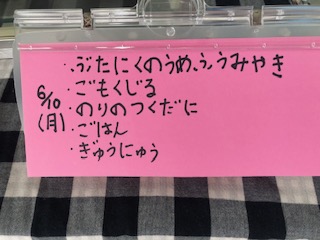 ・ぶたにくのうめふうみやき
・ごもくじる
6/10 ・のりのつくだに
(月) ・ごはん
・ぎゅうにゅう